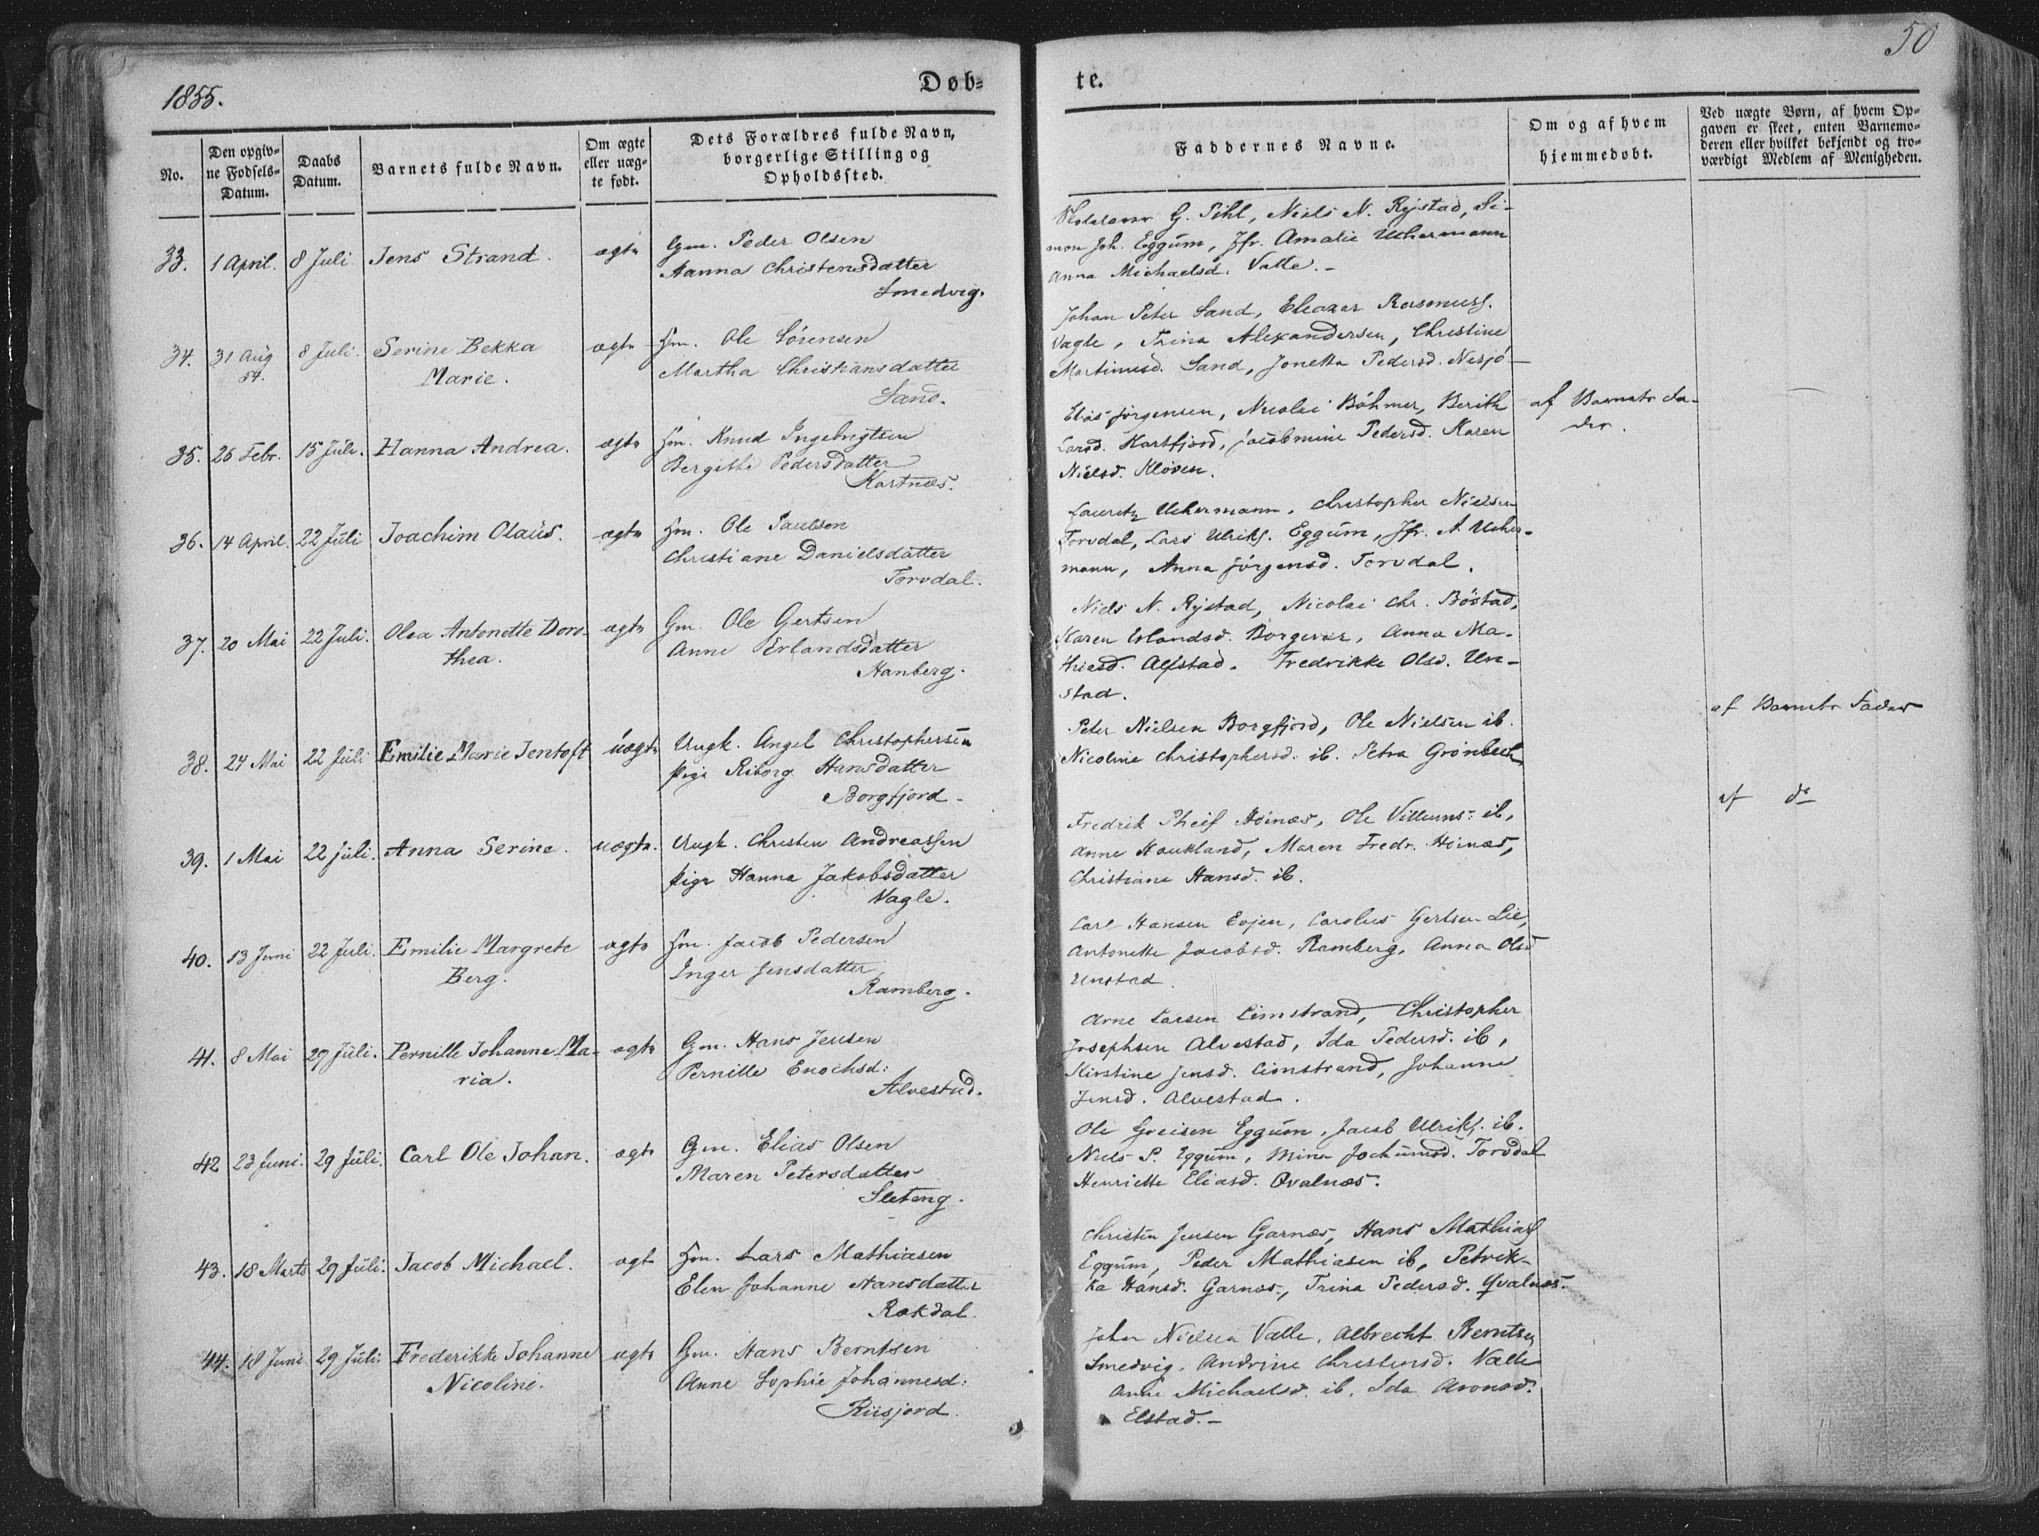 1855.
Døb-
te.
50
No.
Den opgiv-
ne Fødsels-
Datum.
Daabs
Datum.
Barnets fulde Navn.
Om ægte
eller uæg-
te født.
Dets Forældres fulde Navn,
borgerlige Stilling og
Opholdssted.
Faddernes Navne.
Om og af hvem
hjemmedøbt.
Ved uægte Børn, af hvem Op-
gaven er skeet, enten Barnemo-
deren eller hvilket bekjendt og tro-
værdigt Medlem af Menigheden.
33. 1 April. 8 Juli. Jens Strand. ægte
Gm. Peder Olsen
Hanna Christensdatter
Smedvig.
G. Pihl, Niels N. Rystad, Si-
mon Joh. Eggum, Jfr. Amalie Uchermann
Anna Michaelsd. Valle.-
34. 31 Aug 8 Juli. Serine Bekka ægte
54.
Marie.
Hm. Ole Sørensen
Martha Christiansdatter
Sand.
Johan Peter Sand, Eleazer Rasmuss.
Vagle, Trina Alexandersen, Christine
Martinusd. Sand, Jonetta Pedersd. Nesjø-
35. 26 Febr. 15 Juli. Hanna Andrea. ægte
Hm. Knud Ingebrigtsen
Bergitte Pedersdatter
Kartnæs.
Elias Jørgensen, Nicolai Bøhmer, Berith
Larsd. Kartfjord, Jacobmine Pedersd. Karen
Nielsd. Kløven.
af Barnets Fa-
der.
36. 14 April. 22 Juli Joachim Olaus. ægte
Hm. Ole Paulsen
Christiane Danielsdatter
Torvdal.
Lauretz Uchermann, Christopher Nielsen
Torvdal, Lars Ulriks. Eggum, Jfr. A. Ucher-
mann, Anna Jørgensd. Torvdal.
37. 20 Mai 22 Juli. Olea Antonette Doro- ægte
thea.
Gm. Ole Gertsen
Anne Erlandsdatter
Hanberg.
Niels N. Rystad, Nicolai Chr. Bøstad,
Karen Erlandsd. Borgevær, Anna Ma-
thiasd. Alfstad. Fredrikke Olsd. Un-
stad.
38. 24 Mai 22 Juli Emilie Marie Jentoft uægte
Ungk. Angel Christophersen
Pige Riborg Hansdatter
Borgfjord.
Peter Nielsen Borgfjord, Ole Nielsen ib.
Nicoline Christophersd. ib. Petra Grønbech
af Barnets Fader
39. 1 Mai 22 Juli. Anna Serine. uægte.
Ungk. Christen Andreassen
Pige Hanna Jakobsdatter
Vagle.
Fredrik Pheif Høinæs, Ole Villums. ib,
Anne Haukland, Maren Fredr. Høinæs,
Christiane Hansd. ib.
af do
40. 13 Juni 22 Juli. Emilie Margrete ægte
Berg.
Hm. Jacob Pedersen
Inger Jensdatter
Ramberg.
Carl Hansen Evjen, Carolus Gertsen Lie,
Antonette Jacobsd. Ramberg, Anna Olsd
Unstad.
41. 8 Mai 29 Juli. Pernille Johanne Ma- ægte
ria.
Gm. Hans Jensen
Pernille Enochsd:
Alvestad.
Arne Larsen Limstrand, Christopher
Josephsen Alvestad, Ida Pedersd. ib,
Kirstine Jensd. Limstrand, Johanna
Jensd. Alvestad.
42 23 Juni. 29 Juli. Carl Ole Johan. ægte
Gm. Elias Olsen
Maren Petersdatter
Sletteng.
Ole Greisen Eggum, Jacob Ulriks. ib.
Niels P. Eggum, Mina Jochumsd. Torvdal
Henriette Eliasd. Qvalnæs.
43. 18 Marts 29 Juli. Jacob Michael. ægte
Hm. Lars Mathiasen
Elen Johanne Hansdatter
Rakdal.
Christen Jensen Garnæs, Hans Mathias
Eggum, Peder Mathiasen ib, Petrik-
ka Hansd. Garnæs., Trina Pedersd. Qvalnæs.
44. 18 Juni 29 Juli. Frederikke Johanne ægte
Nicoline.
Gm. Hans Berntsen
Anne Sophie Johannesd:
Riisjord.
Johan Nielsen Valle, Albrecht Berntsen
Smedvig, Andrine Christensd. Valle
Anne Michaelsd. ib, Ida Aronsd.
Elstad.-